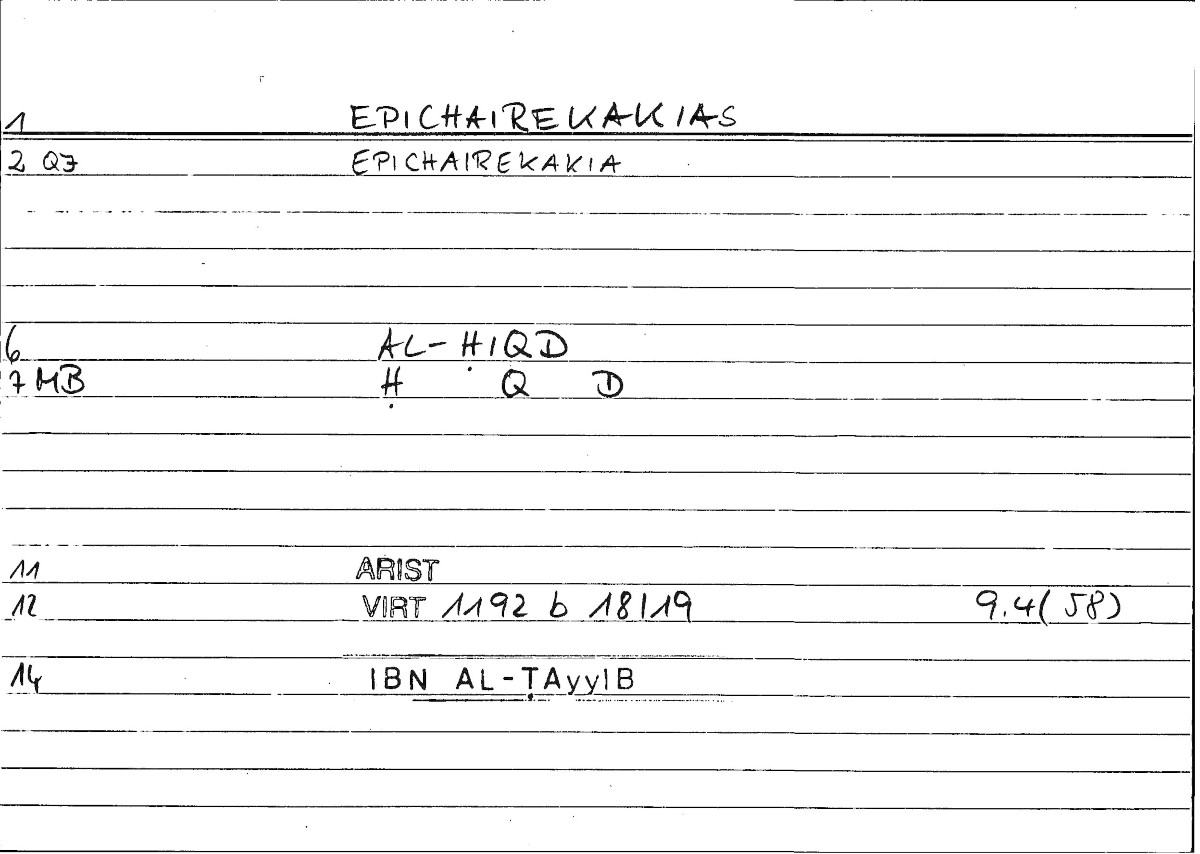 1 EPICHAIREKAKIAS
2 QJ EPICHAIREKAKIA
6 AL-ḤIQD
7 MB Ḥ Q D
11 ARIST
12 VIRT 1192 b 18|19 9.4(58)
14 IBN AL-ṬAyyIB